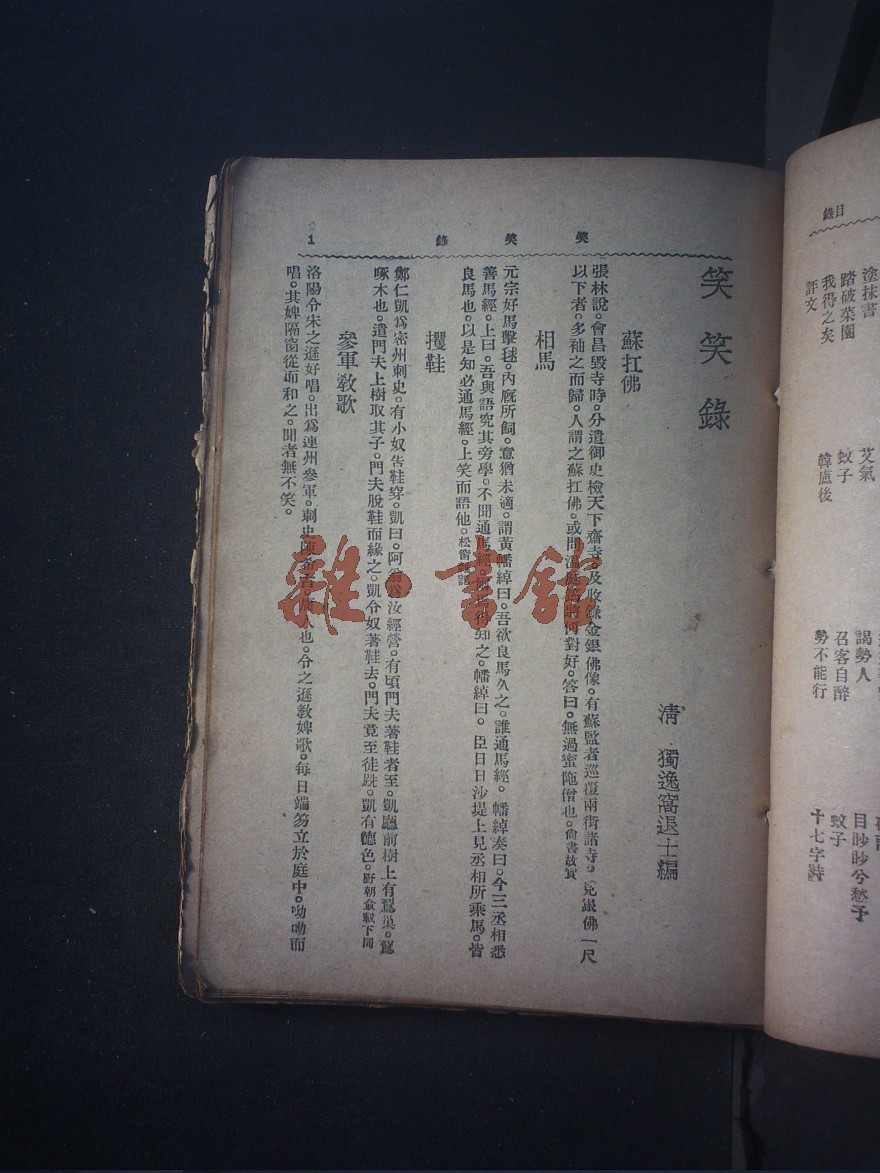 笑笑錄
1
笑笑錄
清 獨逸窩退士編
蘇扛佛
張林說。會昌毀寺時。分遣御史檢天下齋寺。及收錄金銀佛像。有蘇監者巡覆兩街諸寺。見銀佛一尺
以下者。多袖之而歸。人謂之蘇扛佛。或問溫庭筠將何對好。答曰。無過蜜陁僧也。尙書故實
相馬
元宗好馬擊毬。內廐所飼。意猶未適。謂黃幡綽曰。吾欲良馬久之。誰通馬經。幡綽奏曰。今三丞相悉
善馬經。上曰。吾與語究其旁學。不聞通馬經。知之。幡綽曰。臣日日沙堤上見丞相所乘馬。皆
良馬也。以是知必通馬經。上笑而語他。松窗
攫鞋
鄭仁凱爲密州刺史。有小奴告鞋穿。凱曰。阿翁爲汝經營。有頃門夫著鞋者至。凱廳前樹上有鴷巢。鴷
啄木也。遣門夫上樹取其子。門夫脫鞋而緣之。凱令奴著鞋去。門夫竟至徒跣。凱有德色。野朝僉載下同
參軍敎歌
洛陽令宋之遜好唱。出爲連州參軍。刺史陳希古。人也。令之遜敎婢歌。每日端笏立於庭中。呦呦而
唱。其婢隔窗從而和之。聞者無不笑。
雜·書館
目錄
塗抹書
踏破菜園
我得之矣
評文
艾氣
蚊子
韓盧後
謁勢人
召客自醉
勢不能行
目眇眇兮愁予
蚊子
十七字詩